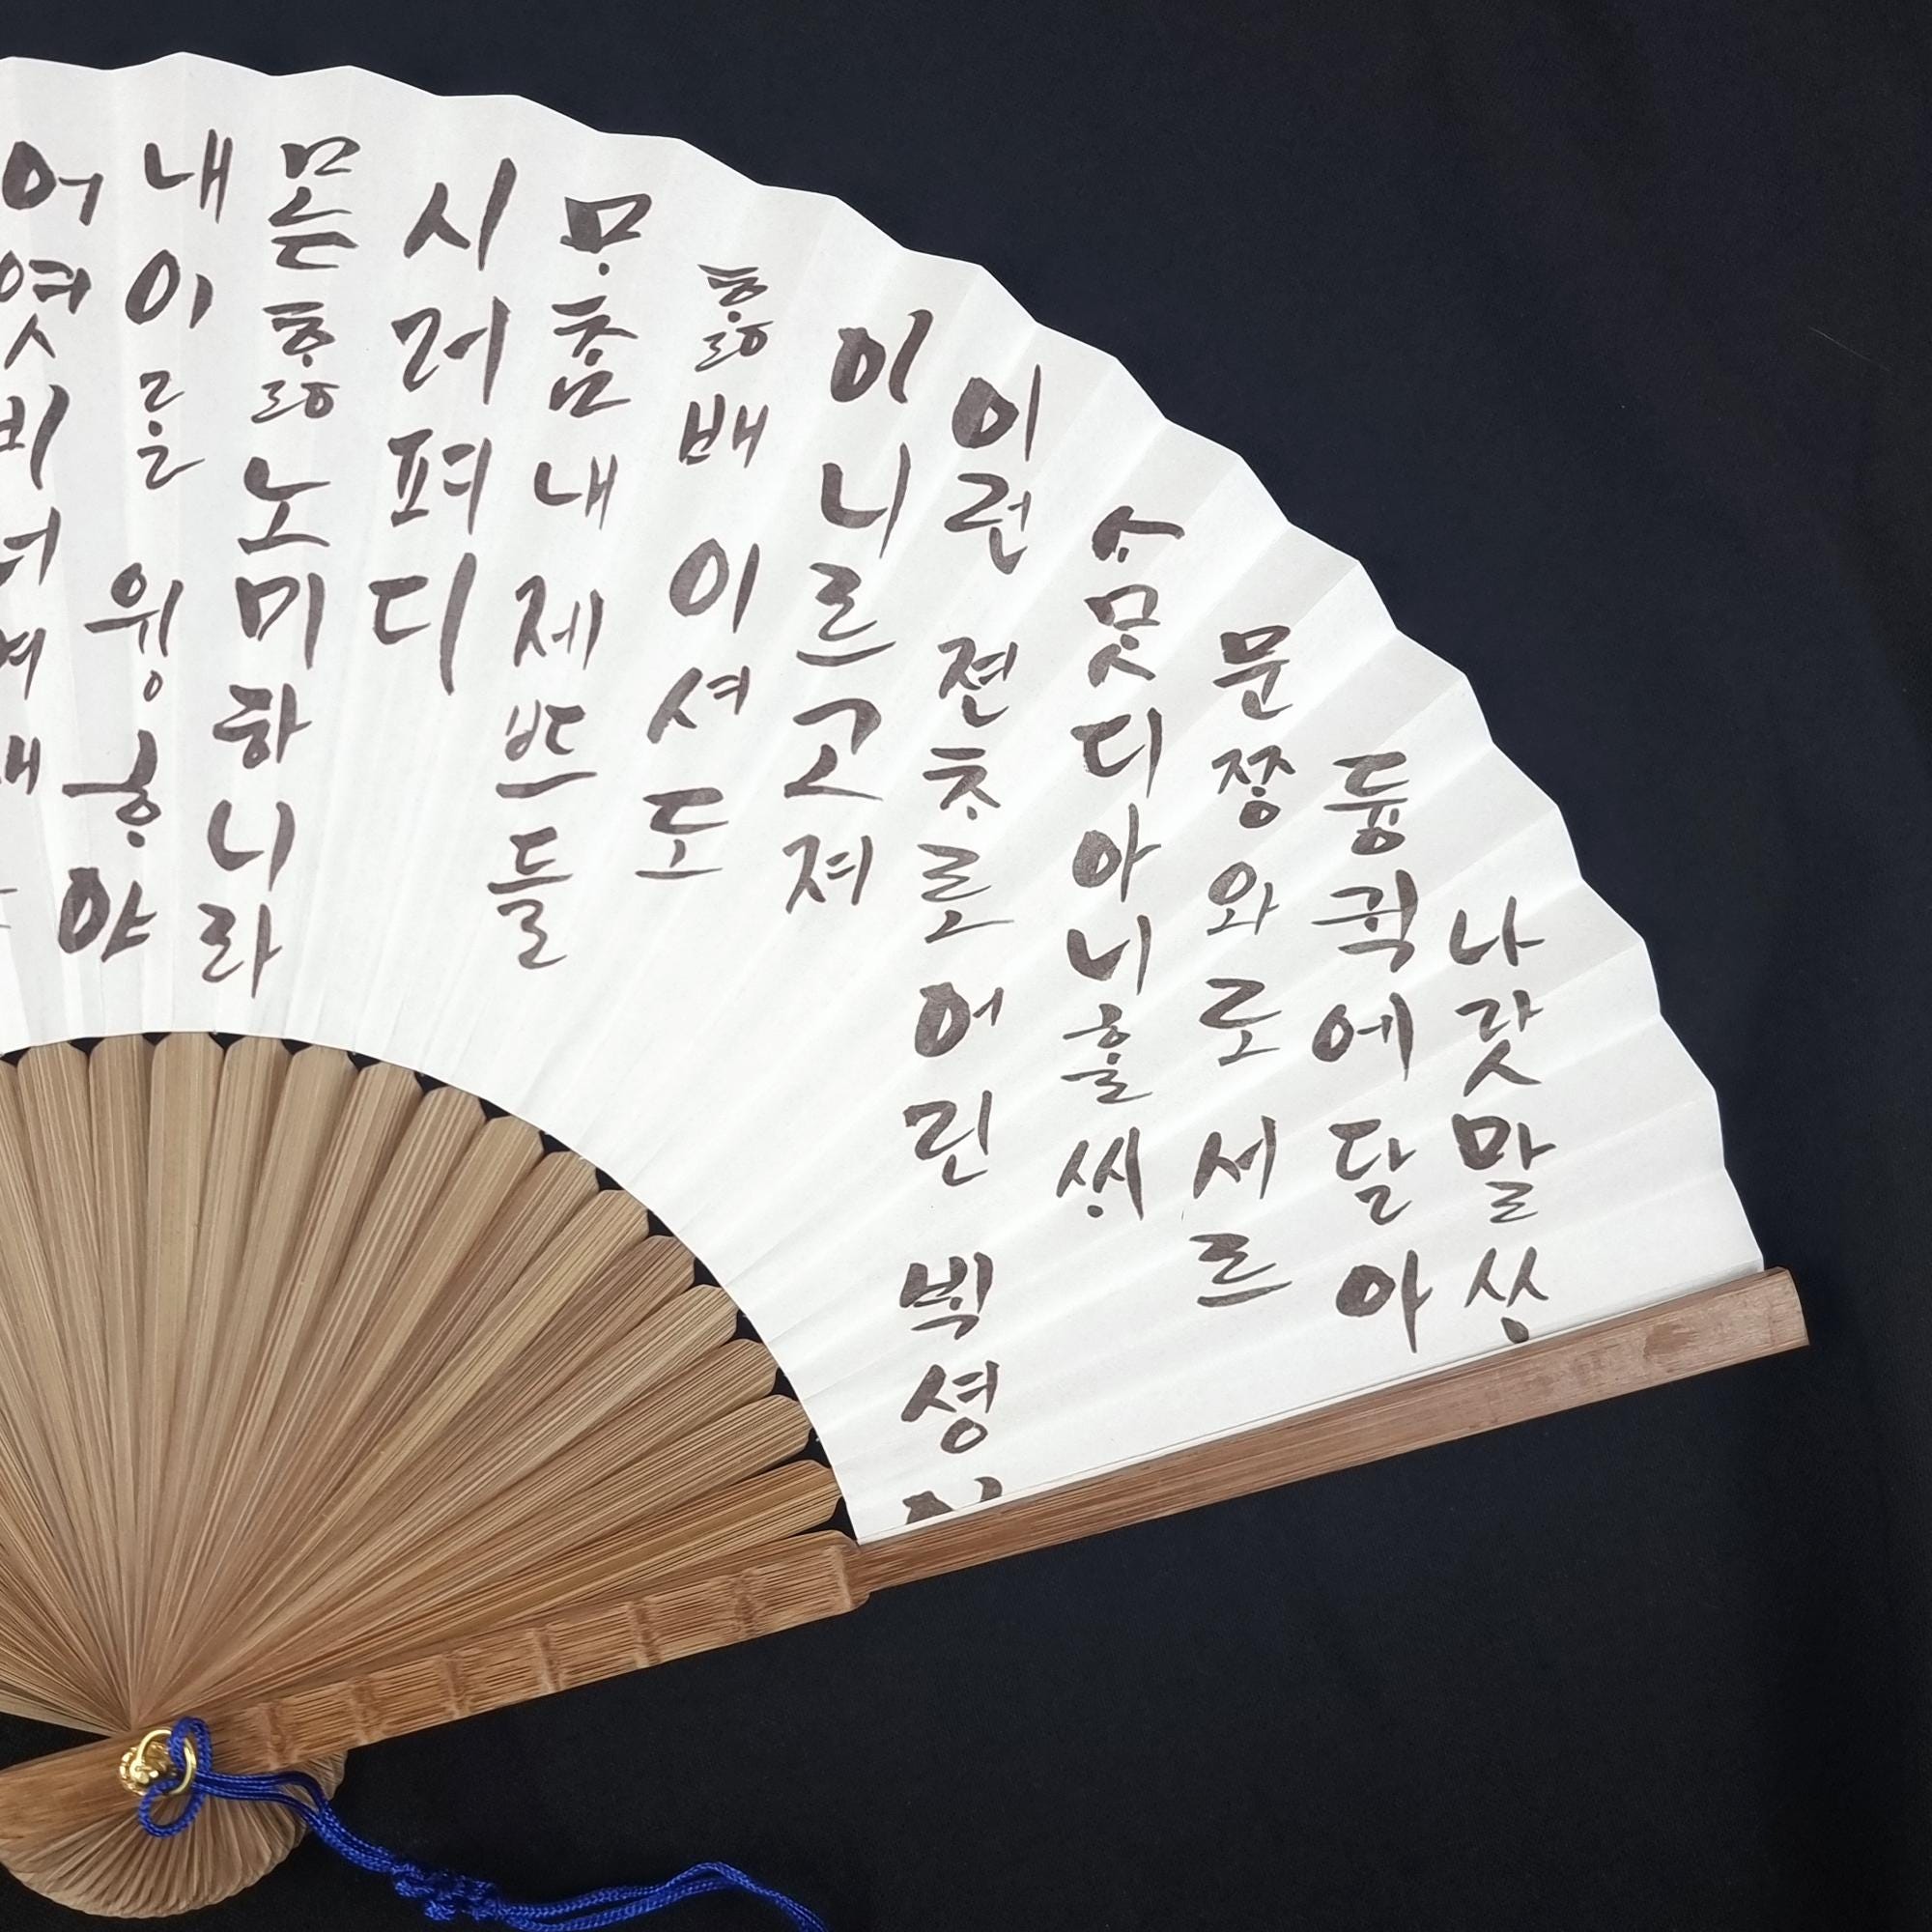 나랏말ᄊᆞ
듕귁에달아
문ᄍᆞᆼ와로 세르
ᄉᆞᄆᆞᆺ디아니ᄒᆞᆯᄊᆡ
이런 젼ᄎᆞ로 어린 ᄇᆡᆨ셩
이니르고져
ᄒᆞᇙ배 이셔도
ᄆᆞᄎᆞᆷ내 제ᄠᅳ들
시러펴디
몯ᄒᆞᇙ노미하니라
내이ᄅᆞᆯ 윙ᄒᆞ야
어엿비너겨새